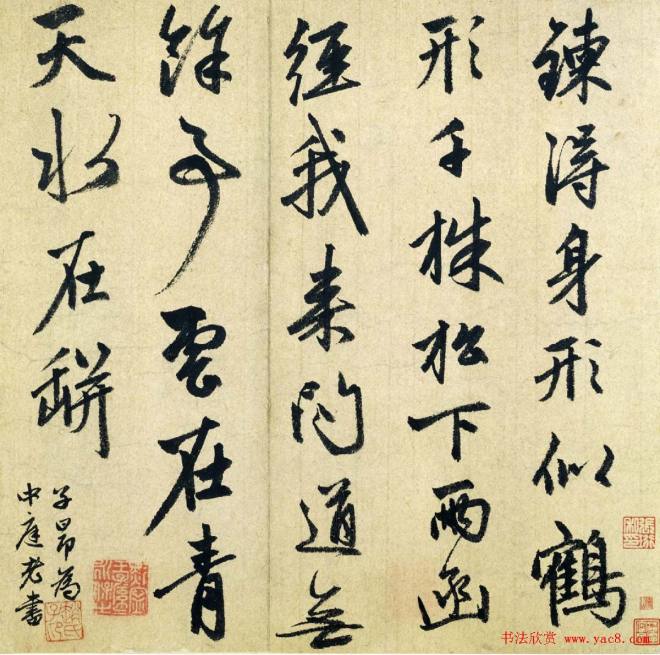 鍊得身形似鶴
形千株松下兩函
經我来問道無
餘事雲在青
天水在缾
子昂為
中庭老書
书法欣赏 www.yac8.com